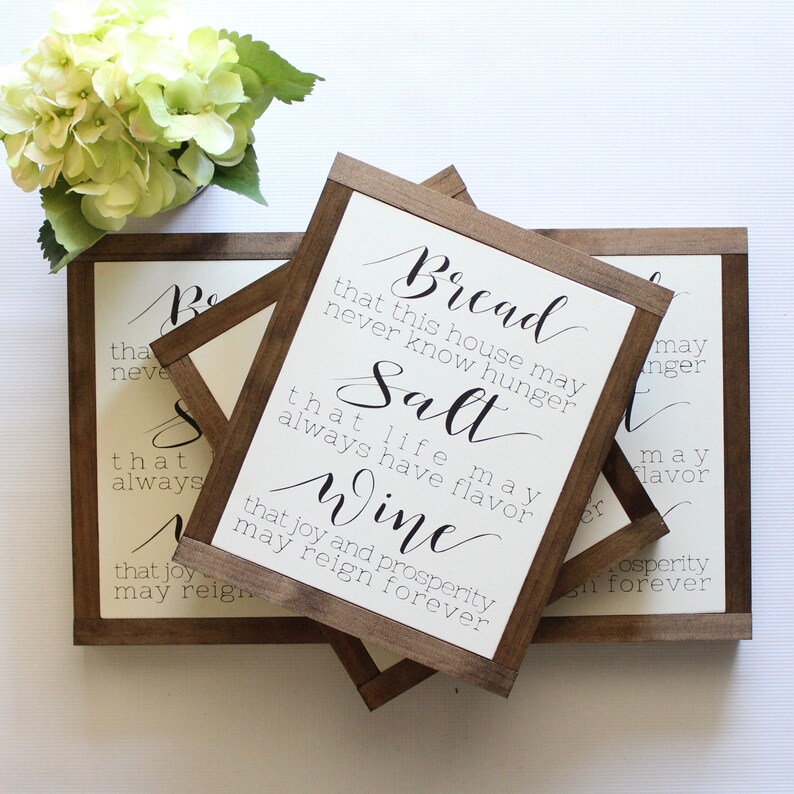 Bread
that this house may
never know hunger
Salt
that life may
always have flavor
Wine
that joy and prosperity
may reign forever
tha
never
that l
always
that joy
may reign
may
hunger
may
flavor
sperity
forever